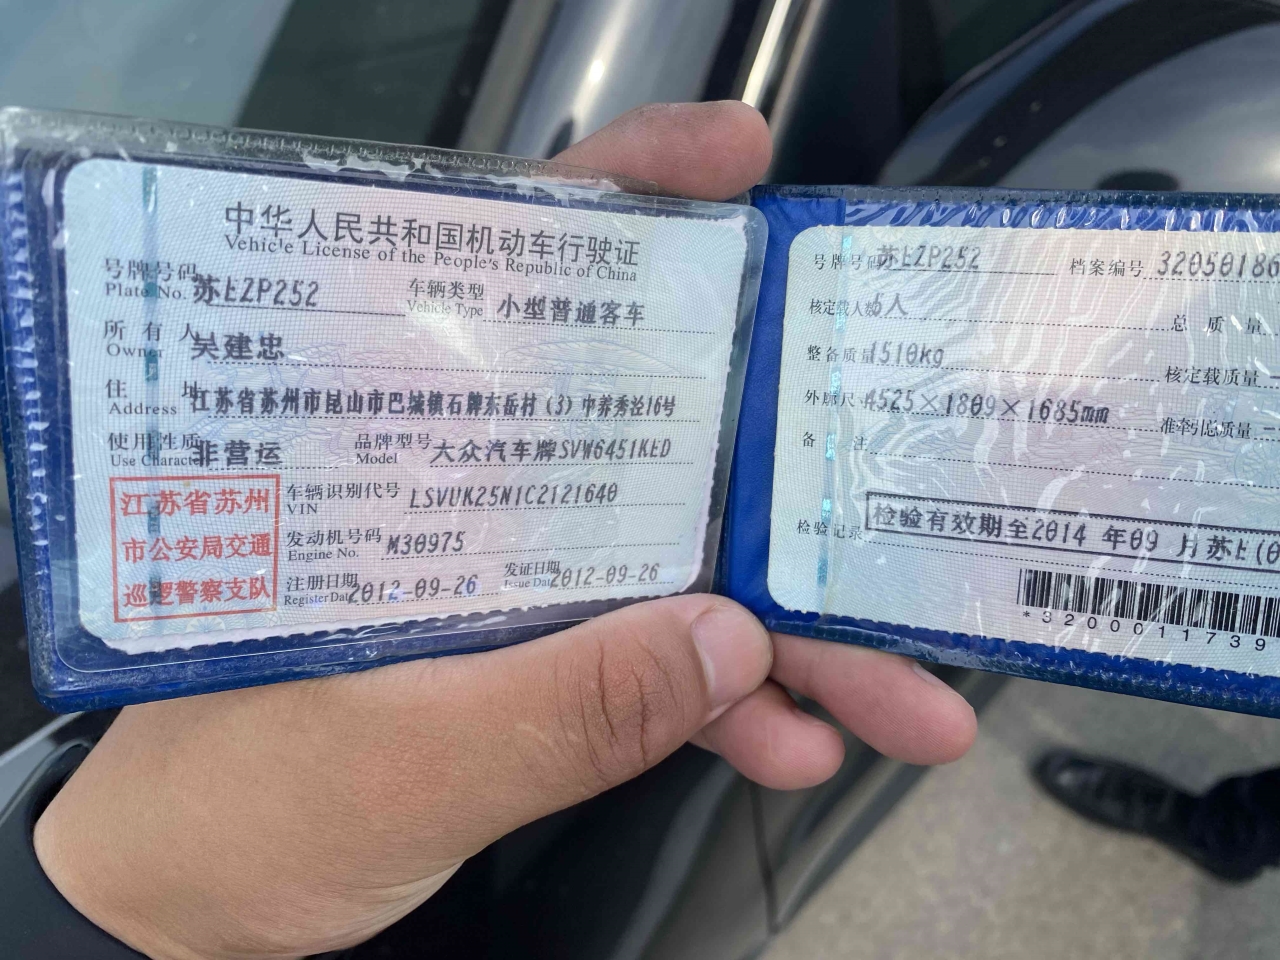 中华人民共和国机动车行驶证
Vehicle License of the People's Republic of China
号牌号码 苏EZP252 车辆类型 小型普通客车
Plate No. Vehicle Type
所有人 吴建忠
Owner
住址 江苏省苏州市昆山市巴城镇石牌东岳村(3)中养秀泾16号
Address
使用性质 非营运 品牌型号 大众汽车牌SVW6451KED
Use Character Model
江苏省苏州
市公安局交通
巡逻警察支队
车辆识别代号 LSVUK25N1C2121640
VIN
发动机号码 M30975
Engine No.
注册日期 2012-09-26 发证日期 2012-09-26
Register Date Issue Date
号牌号码 苏EZP252 档案编号 32050186
核定载人数 5人 总质量
整备质量 1510kg 核定载质量
外廓尺寸 4525×1809×1685mm 准牵引总质量
备注
检验记录 检验有效期至2014年09月苏E(0
*3200011739